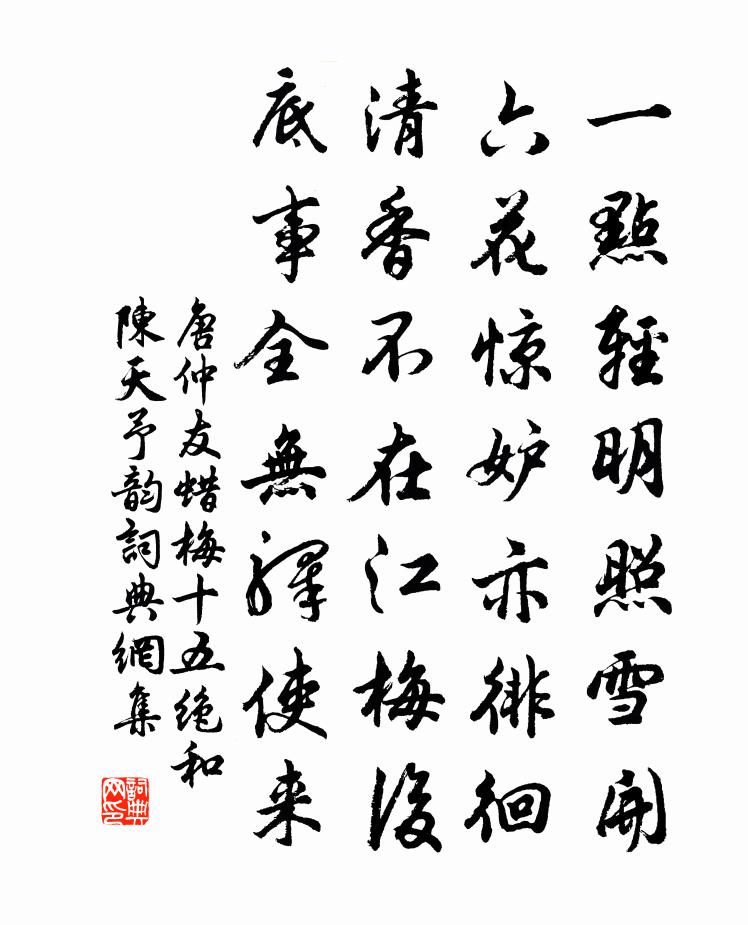 一點輕明照雪開
六花惊妒亦徘徊
清香不在江梅後
底事全無驛使来
唐仲友蜡梅十五绝和
陳天予韵詞典網集
詞典网印